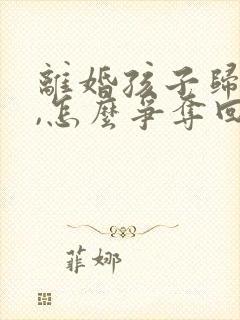 離婚孩子歸
,怎麼爭奪回
菲娜